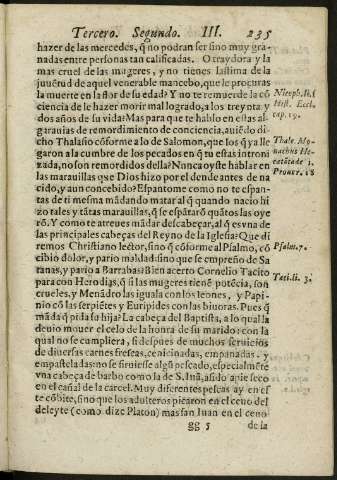 Tercero. Segundo. III. 235
hazer de las mercedes, q̃ no podran ser sino muy gra-
nadas entre personas tan calificadas. O traydora y la
mas cruel de las mugeres, y no tienes lastima de la
juuẽtud de aquel venerable mancebo, que le procuras
la muerte en la flor de su edad? Y no te remuerde la cõ
ciencia de le hazer morir mal logrado, a los treynta y
dos años de su vida? Mas para que te hablo en estas al-
garauias de remordimiento de conciencia, auiẽdo di-
cho Thalasio cõforme a lo de Salomon, que los q̃ ya lle
garon a la cumbre de los pecados en q̃ tu estas introni
zada, no son remordidos della? Nunca oyste hablar en
las marauillas que Dios hizo por el dende antes de na
cido, y aun concebido? Espantome como no te espan-
tas de ti mesma mãdando matar al q̃ quando nacio hi
zo tales y tãtas marauillas, q̃ se espãtarõ quãtos las oye
rõ. Y como te atreues mãdar descabeçar, al q̃ es vna de
las principales cabeças del Reyno de la Iglesia? Que di
remos Christiano lector, sino q̃ cõforme al Psalmo, cõ
cibio dolor, y pario maldad: sino que se empreño de Sa
tanas, y pario a Barrabas? Bien acerto Cornelio Tacito
para con Herodias, q̃ si las mugeres tienẽ potẽcia, son
crueles, y Menãdro las iguala con los leones, y Papi-
nio cõ las serpiẽtes y Euripides con las biuoras. Pues q̃
mãda q̃ pida su hija? La cabeça del Baptista, a lo qual la
deuio mouer el celo de la honra de su marido: con la
qual no se cumpliera, si despues de muchos seruicios
de diuersas carnes frescas, cenicinadas, empanadas, y
empasteladas: no se siruiesse algũ pescado, especialmẽte
vna cabeça de barbo como la de S. Iuã, asido a pie seco
en el cañal de la carcel. Muy diferentes pescas ay en es
te cõbite, sino que los adulteros picaron en el ceuo del
deleyte (como dize Platon) mas san Iuan en el ceuo
gg 5 de la
Niceph. li. 1
Hist. Eccl.
cap. 19.
Thala. Mo-
nachus He-
catõtade 1.
Prouer. 18
Psalm. 7.
Taci. li. 3.